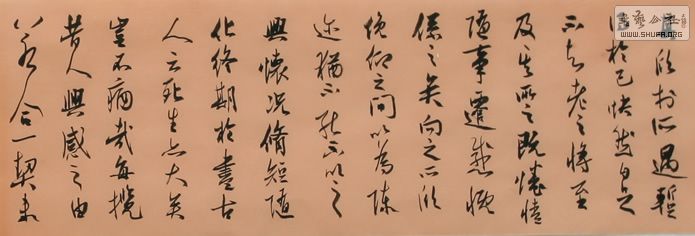 欣於所遇輒
於己快然自足
不知老之將至
及其所之既惓情
隨事遷感慨
係之矣向之所欣
俛仰之間以為陳
迹猶不能不以之
興懷況脩短隨
化終期於盡古
人云死生亦大矣
豈不痛哉每攬
昔人興感之由
若合一契未
WWW.SHUFA.ORG